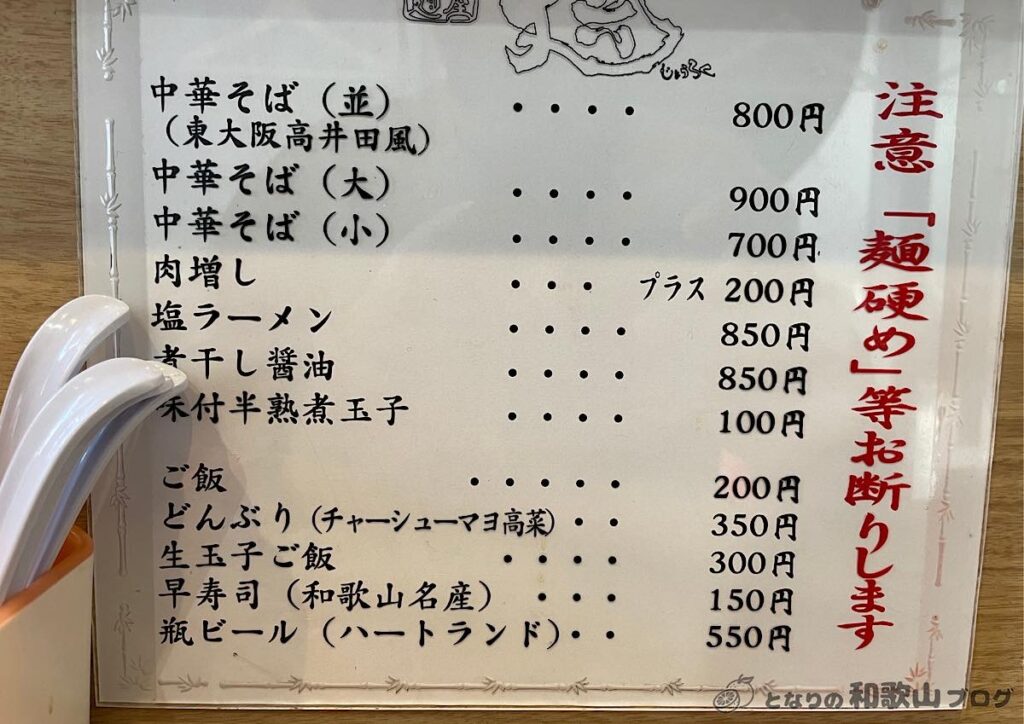 じょうろく
中華そば（並）・・・・ 800円
（東大阪高井田風）
中華そば（大）・・・・ 900円
中華そば（小）・・・・ 700円
肉増し ・・・ プラス 200円
塩ラーメン ・・・・ 850円
煮干し醤油 ・・・・ 850円
味付半熟煮玉子 ・・・・ 100円
ご飯 ・・・・・ 200円
どんぶり（チャーシューマヨ高菜）・・ 350円
生玉子ご飯 ・・・・ 300円
早寿司（和歌山名産）・・・ 150円
瓶ビール（ハートランド）・・ 550円
注意「麺硬め」等お断りします
となりの和歌山ブログ